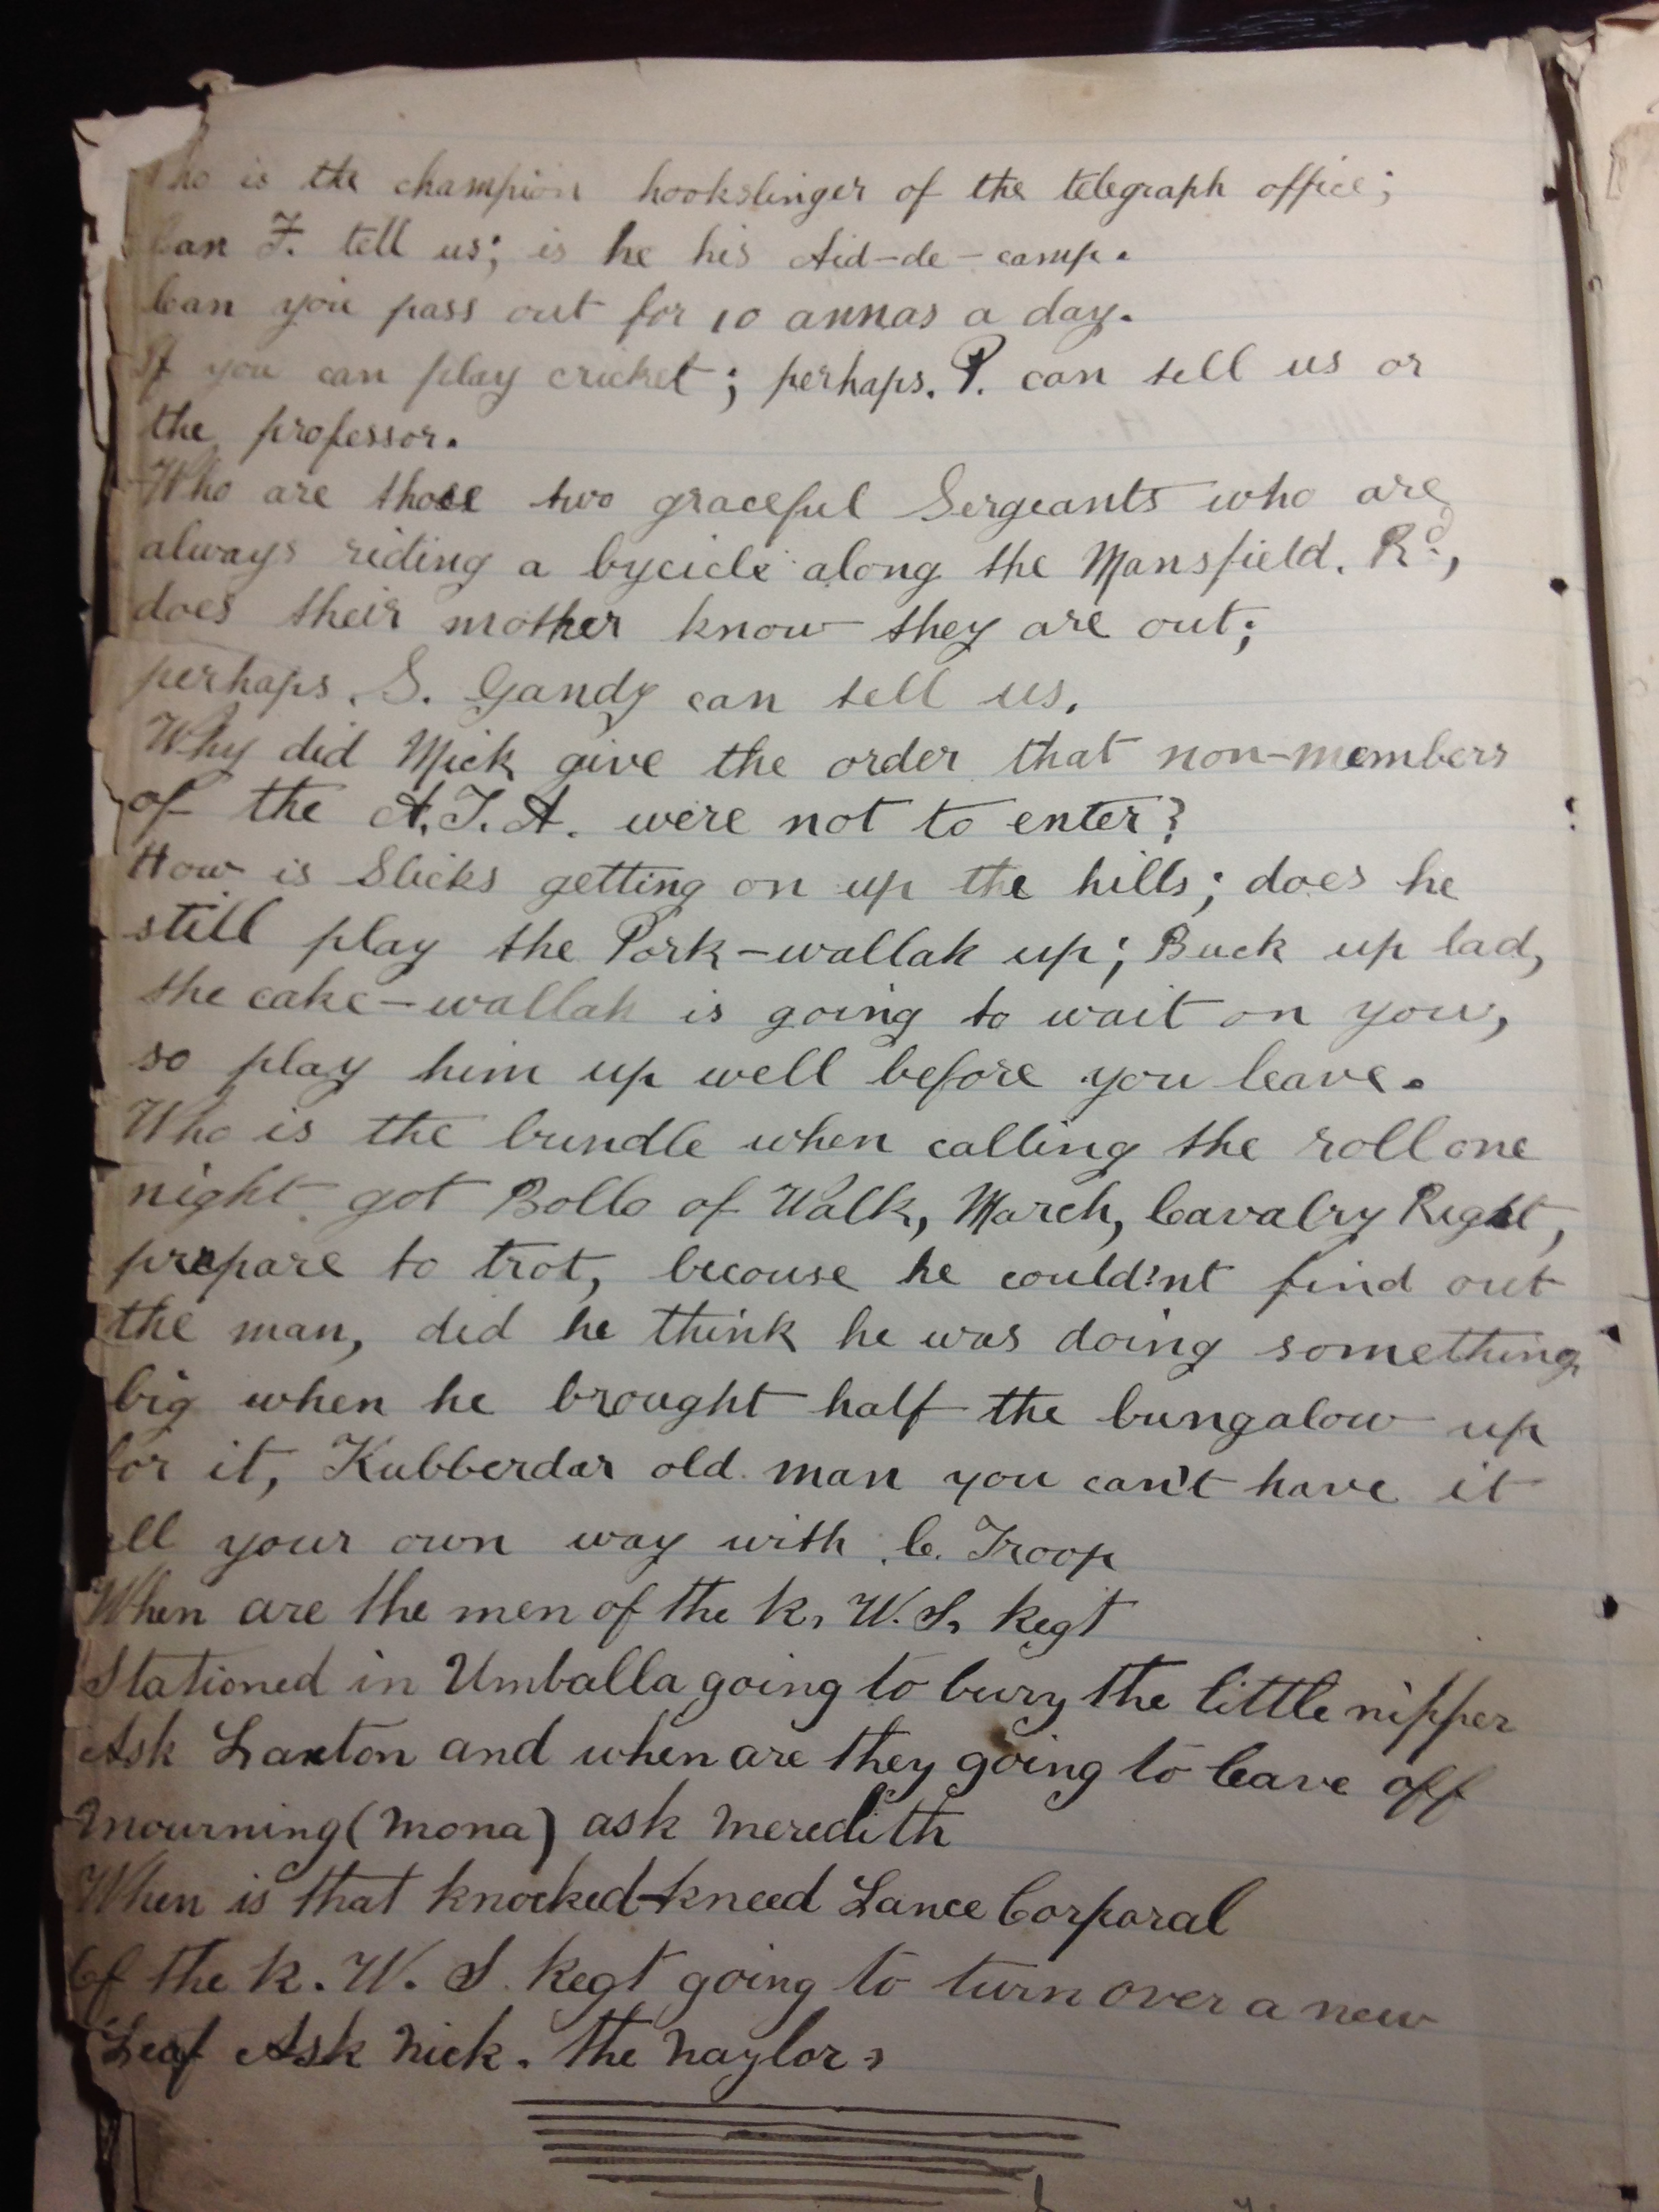 Who is the champion hookslinger of the telegraph office;
Can F. tell us; is he his Aid-de-camp.
Can you pass out for 10 annas a day.
If you can play cricket; perhaps. P. can tell us or
the professor.
Who are those two graceful Sergeants who are
always riding a bycicle along the Mansfield. Rd.,
does their mother know they are out;
perhaps. S. Gandy can tell us.
Why did Mick give the order that non-members
of the A.T.A. were not to enter?
How is Slicks getting on up the hills; does he
still play the Pork-wallah up; Buck up lad,
the cake-wallah is going to wait on you,
so play him up well before you leave.
Who is the bundle when calling the roll one
night got Bollo of Walk, March, Cavalry Right,
prepare to trot, because he could'nt find out
the man, did he think he was doing something
big when he brought half the bungalow up
for it, Kubberdar old man you can't have it
all your own way with C. Troop
When are the men of the K. W. S. Regt
Stationed in Umballa going to bury the little nipper
Ask Laxton and when are they going to leave off
mourning (Mona) ask Meredith
When is that knocked-kneed Lance Corporal
Of the K. W. S. Regt going to turn over a new
Leaf Ask Nick. The Naylor.